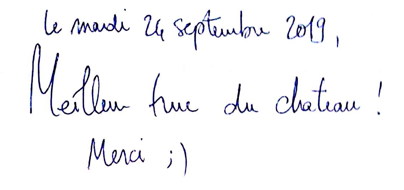 Le mardi 24 septembre 2019,
Meilleur truc du chateau !
Merci ;)